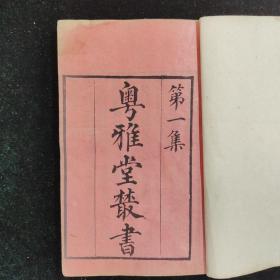 第一集
粵雅堂叢書